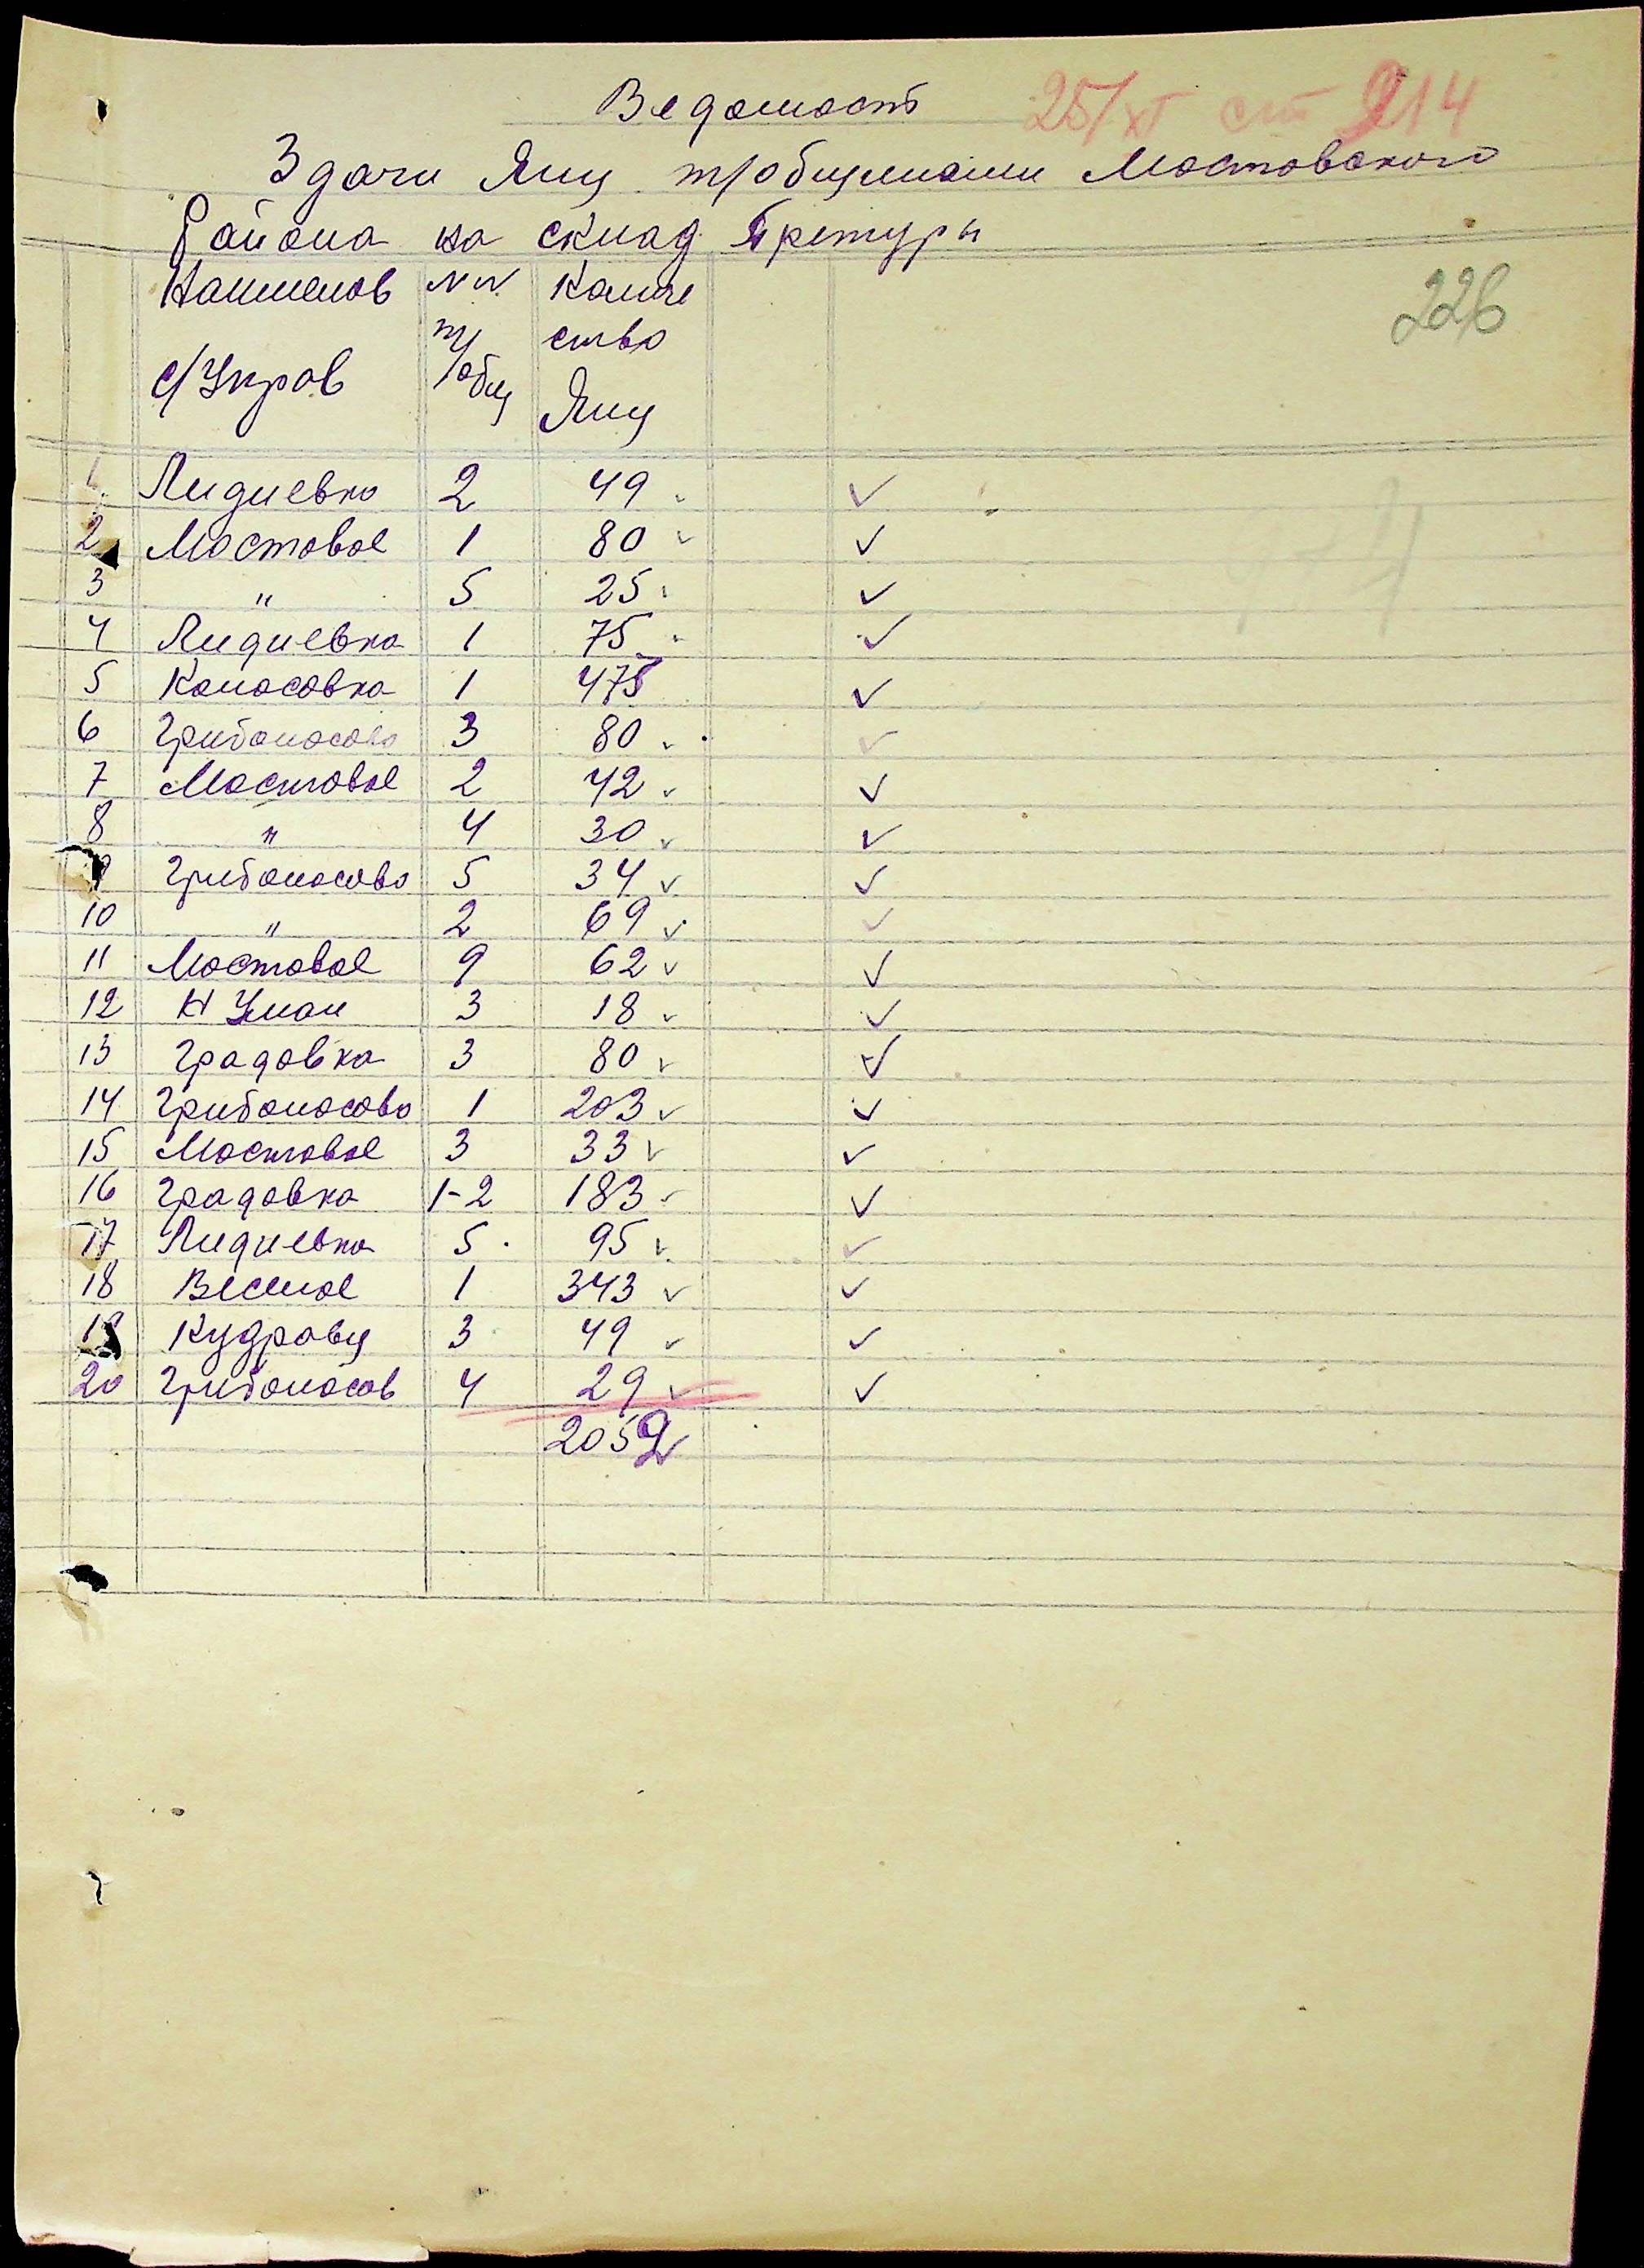 Ведомость 25/XI ст 214
Здачи Яиц т/общинами Мостовского
Района на склад Претуры
226
Наименов №№ Количе
т/общ ство
с/Управ Яиц
1. Лидиевка 2 49
2 Мостовое 1 80
3 " 5 25
4 Лидиевка 1 75
5 Колосовка 1 473
6 Грибоносово 3 80
7 Мостовое 2 42
8 " 4 30
9 Грибоносово 5 34
10 " 2 69
11 Мостовое 9 62
12 Н Уман 3 18
13 Градовка 3 80
14 Грибоносово 1 203
15 Мостовое 3 33
16 Градовка 1-2 183
17 Лидиевка 5. 95
18 Веселое 1 343
19 Кудрявц 3 49
20 Грибоносов 4 29
2052